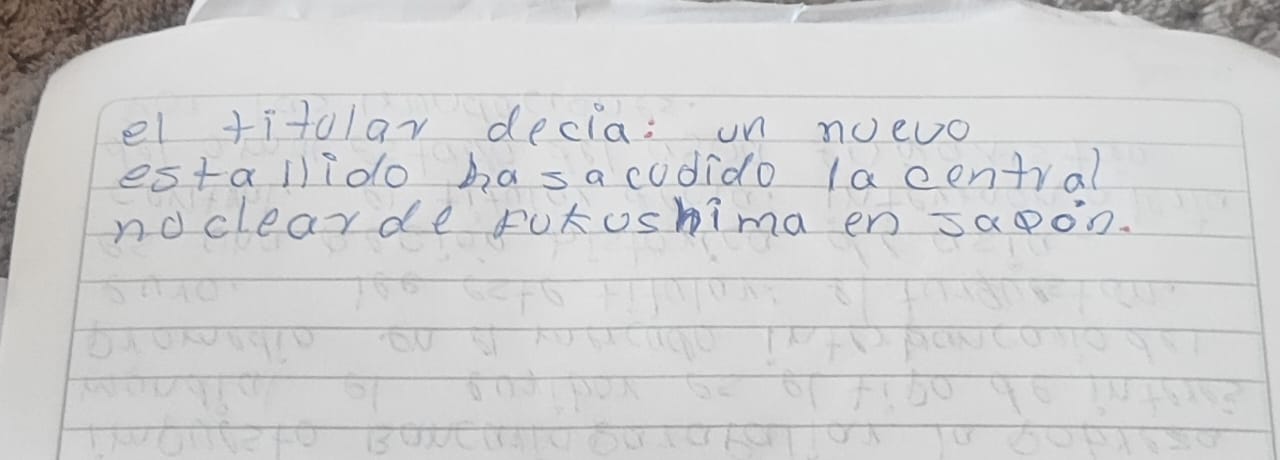 el titular decía: un nuevo
estallido ha sacudido la central
nuclear de Fukushima en Japón.